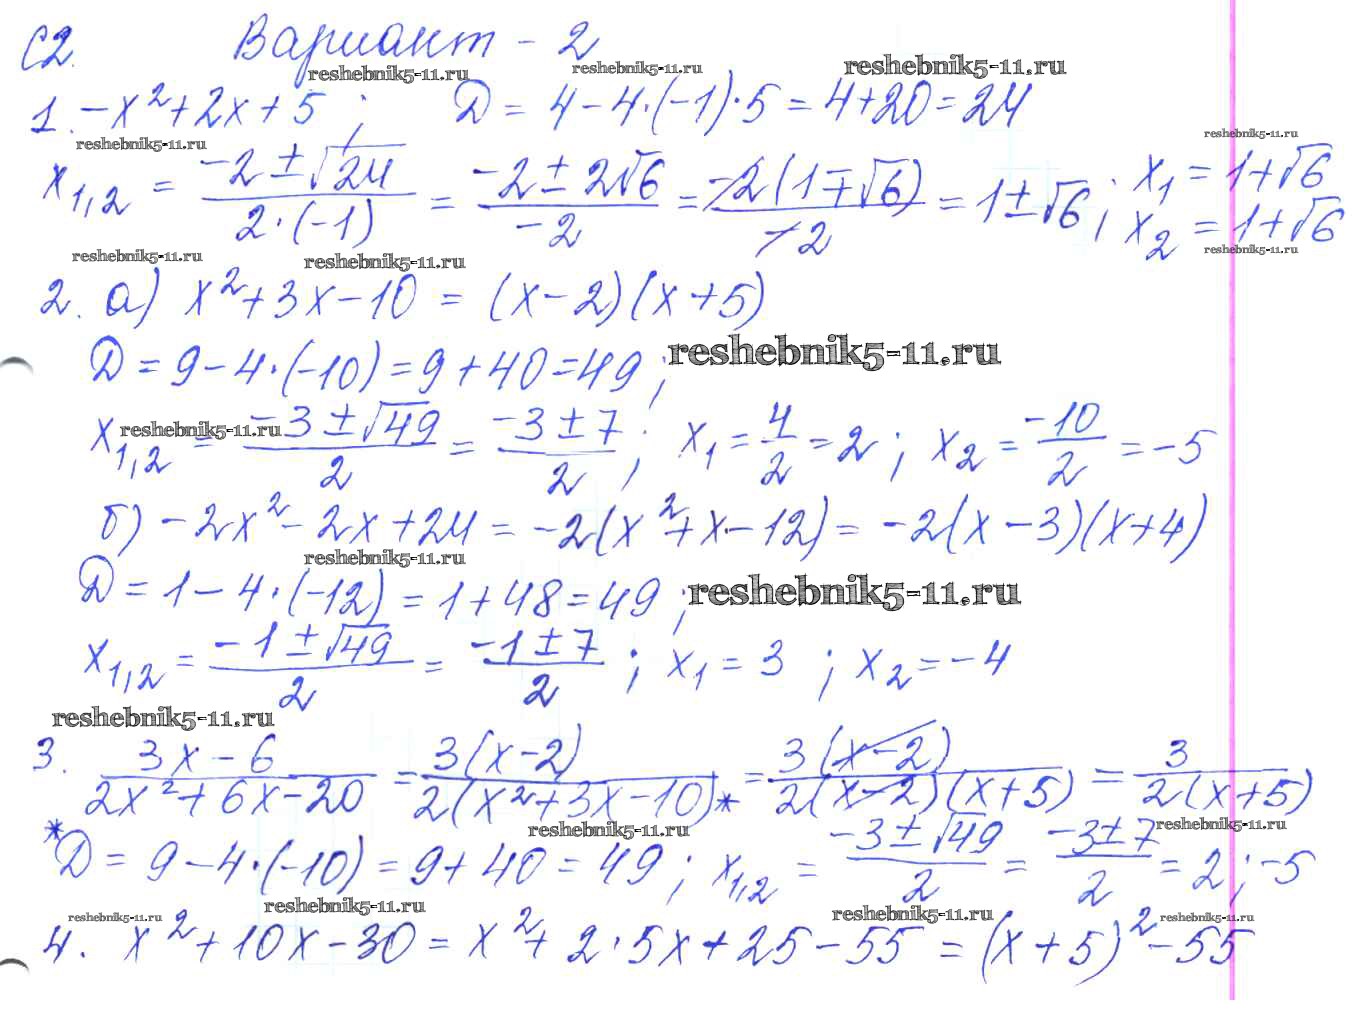 С2. Вариант - 2
reshebnik5-11.ru reshebnik5-11.ru reshebnik5-11.ru
1. -x²+2x+5 ; D = 4-4·(-1)·5 = 4+20 = 24
reshebnik5-11.ru reshebnik5-11.ru
x₁,₂ = (-2±√24)/(2·(-1)) = (-2±2√6)/(-2) = (-2(1∓√6))/(-2) = 1±√6 ; x₁ = 1+√6
x₂ = 1+√6
reshebnik5-11.ru reshebnik5-11.ru reshebnik5-11.ru
2. а) x²+3x-10 = (x-2)(x+5)
D = 9-4·(-10) = 9+40 = 49 ; reshebnik5-11.ru
x₁,₂ = (-3±√49)/2 = (-3±7)/2 ; x₁ = 4/2 = 2 ; x₂ = -10/2 = -5
reshebnik5-11.ru
б) -2x²-2x+24 = -2(x²+x-12) = -2(x-3)(x+4)
reshebnik5-11.ru
D = 1-4·(-12) = 1+48 = 49 ; reshebnik5-11.ru
x₁,₂ = (-1±√49)/2 = (-1±7)/2 ; x₁ = 3 ; x₂ = -4
reshebnik5-11.ru
3. (3x-6)/(2x²+6x-20) = 3(x-2)/(2(x²+3x-10))* = 3(x-2)/(2(x-2)(x+5)) = 3/(2(x+5))
reshebnik5-11.ru reshebnik5-11.ru
*D = 9-4·(-10) = 9+40 = 49 ; x₁,₂ = (-3±√49)/2 = (-3±7)/2 = 2 ; -5
reshebnik5-11.ru reshebnik5-11.ru reshebnik5-11.ru reshebnik5-11.ru
4. x²+10x-30 = x²+2·5x+25-55 = (x+5)²-55